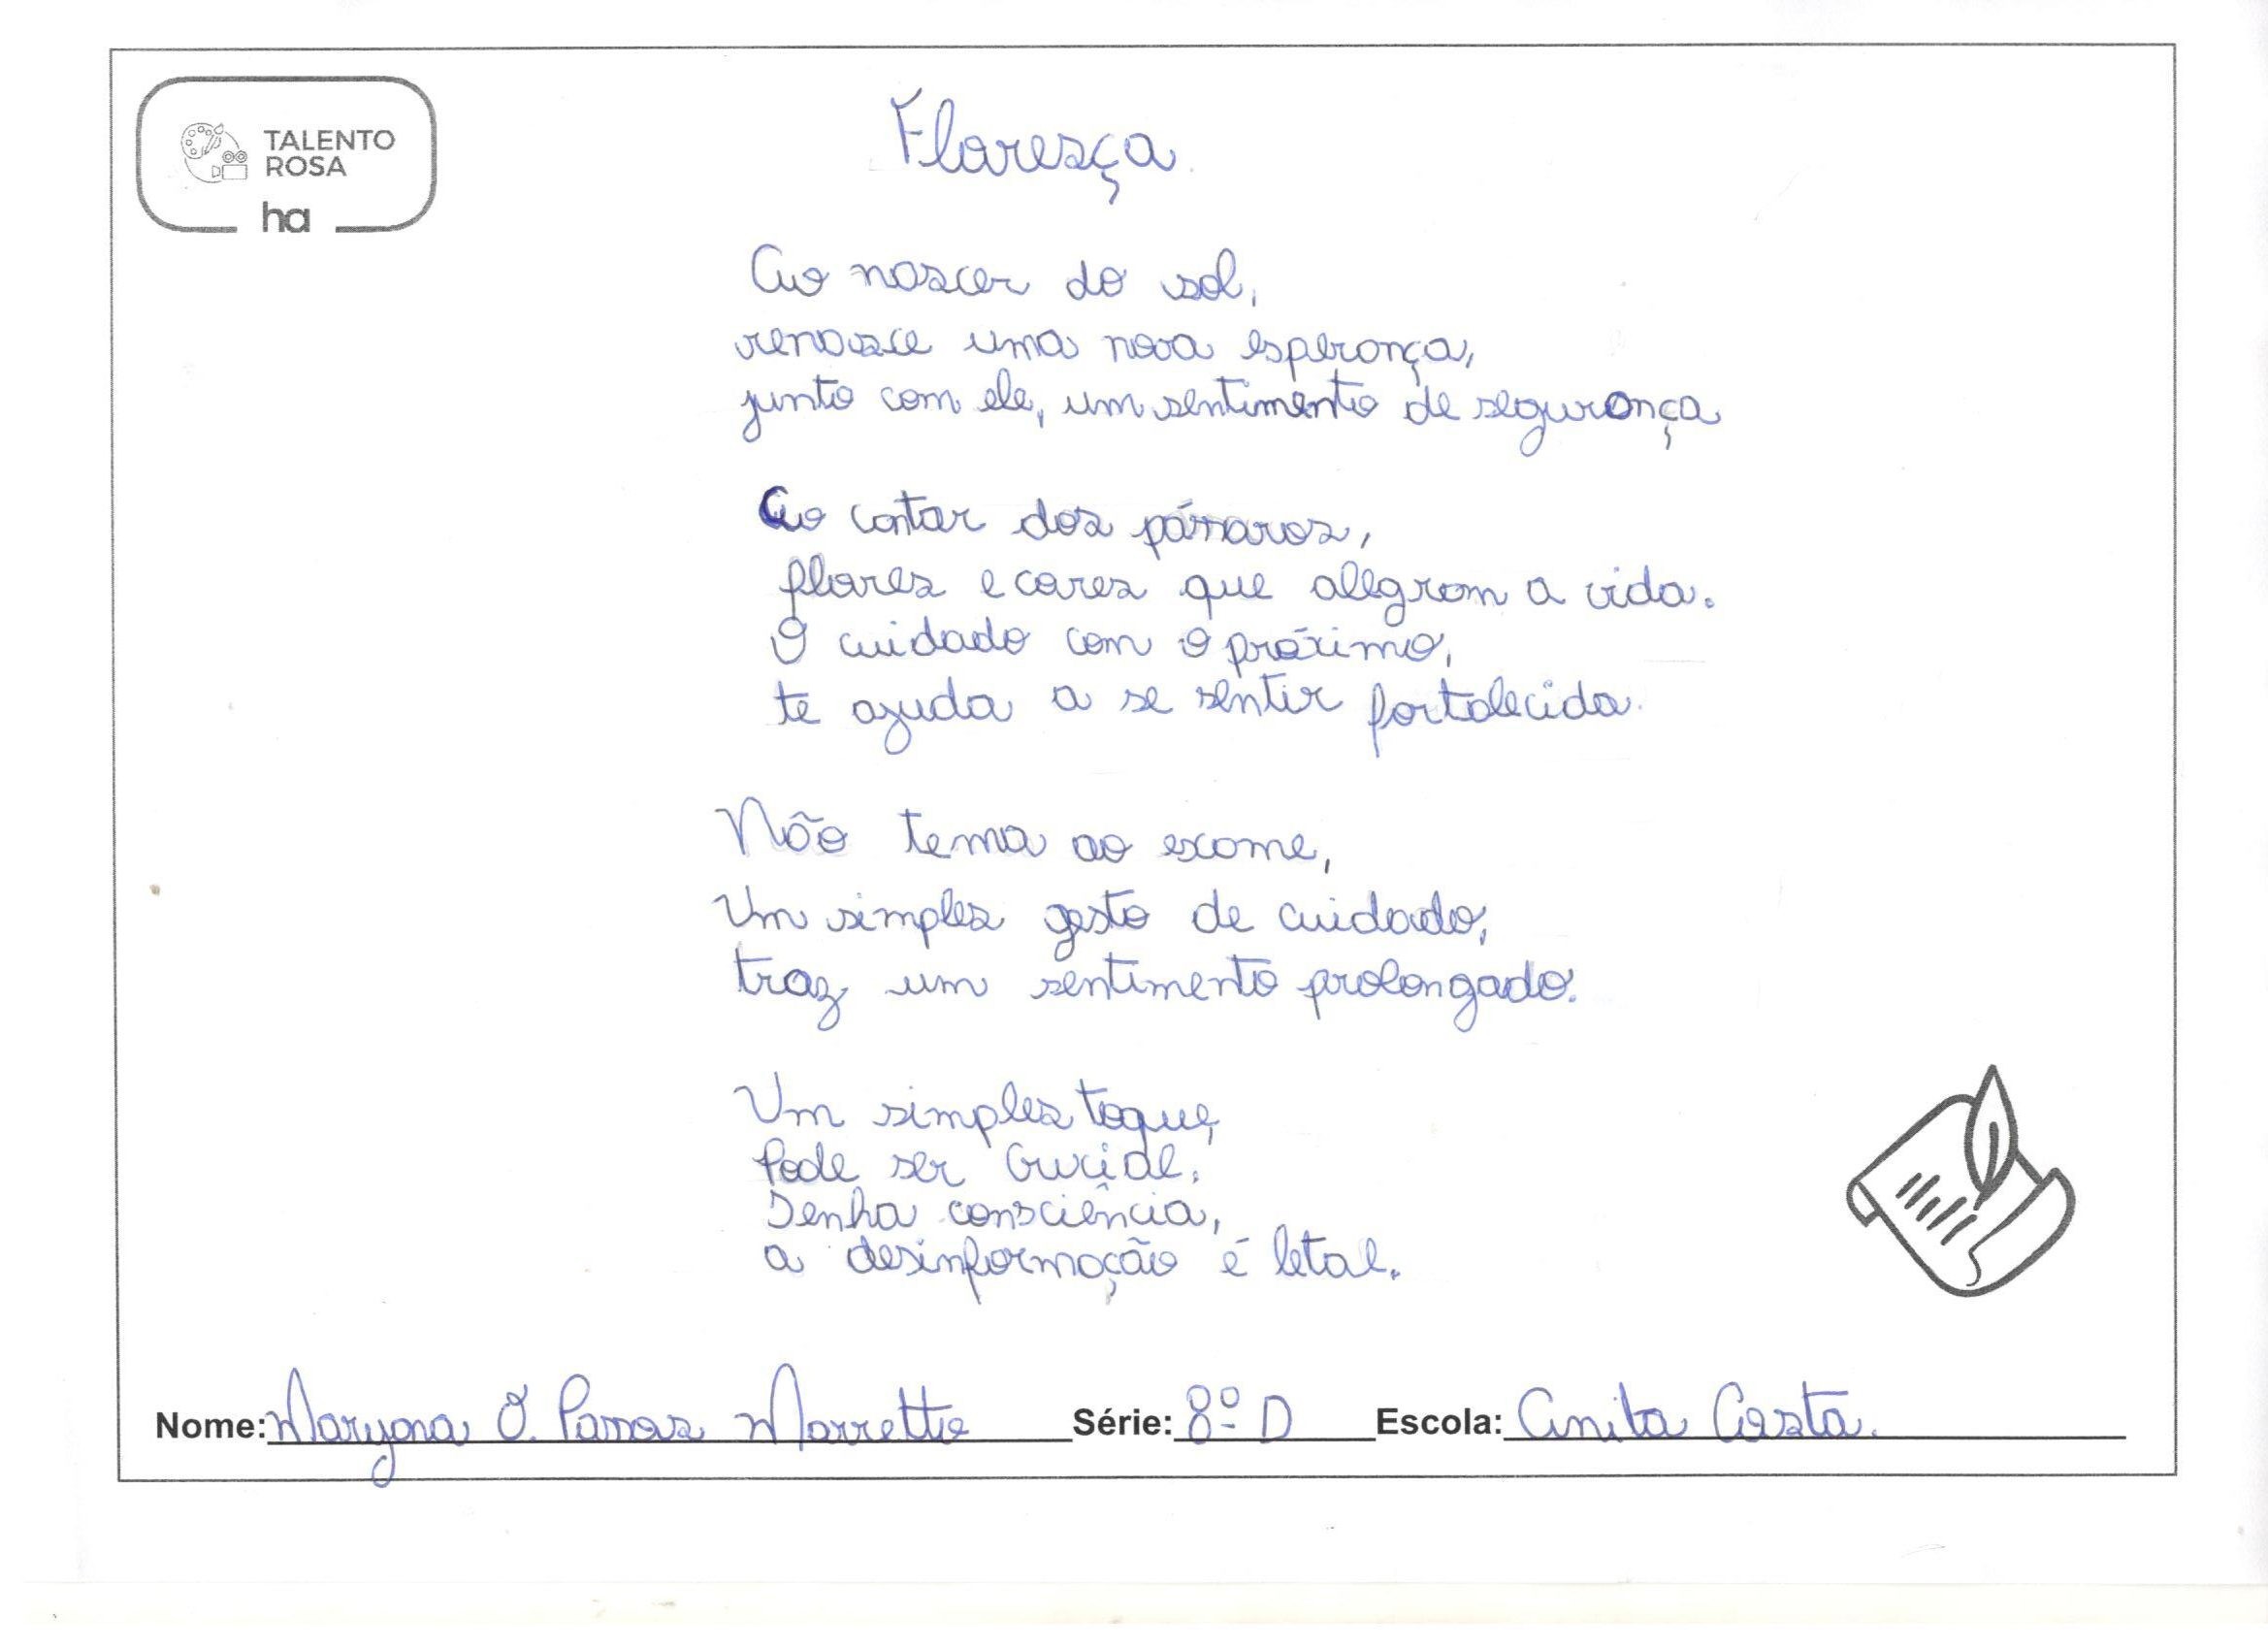 TALENTO
ROSA
ha
Floresça
Ao nascer do sol,
renasce uma nova esperança,
junto com ele, um sentimento de segurança
Ao cantar dos pássaros,
flores e cores que alegram a vida.
O cuidado com o próximo,
te ajuda a se sentir fortalecida.
Não tema ao exame,
Um simples gesto de cuidado,
traz um sentimento prolongado.
Um simples toque,
Pode ser Crucial.
Tenha consciência,
a desinformação é letal.
Nome: Maryana O. Passos Marretto Série: 8º D Escola: Anita Costa.